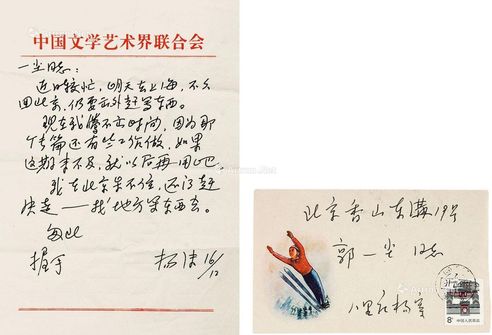 中国文学艺术界联合会
一尘同志：
近日较忙，明天去上海，不久
回北京，仍要去外赶写东西。
现在我腾不出时间，因为那
个长篇还有些工作做，如果
这期来不及，就以后再用吧
我在北京呆不住，还得赶
快走——找地方写东西去。
匆此
握手
16/12
北京香山东沟19号
郭一尘 同志
八里庄杨
8分
中国人民邮政